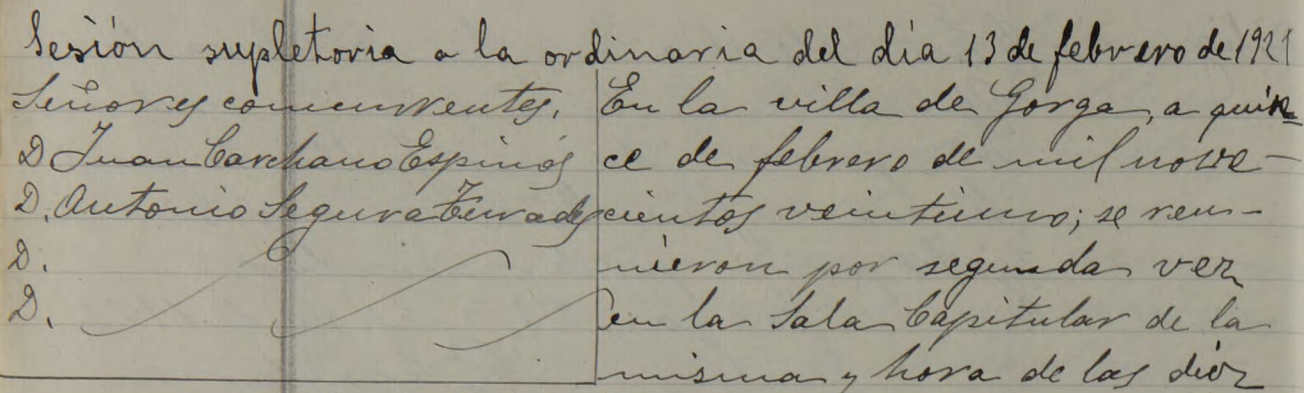 Sesión supletoria a la ordinaria del día 13 de febrero de 1921
Señores concurrentes.
D Juan Carchano Espinós
D. Antonio Segura
D.
D.
En la villa de Gorga, a quin=
ce de febrero de mil nove-
cientos veintiuno; se reu-
nieron por segunda vez
en la Sala Capitular de la
misma y hora de las diez